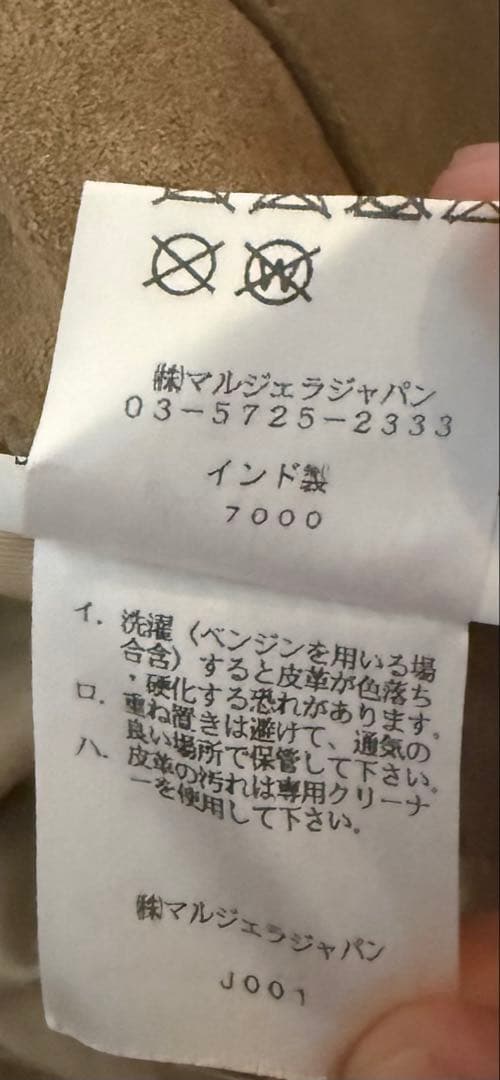 W
㈱マルジェラジャパン
03-5725-2333
インド製
7000
イ. 洗濯（ベンジンを用いる場
合含）すると皮革が色落ち
・硬化する恐れがあります。
ロ. 重ね置きは避けて、通気の
良い場所で保管して下さい。
ハ. 皮革の汚れは専用クリーナ
ーを使用して下さい。
㈱マルジェラジャパン
J001